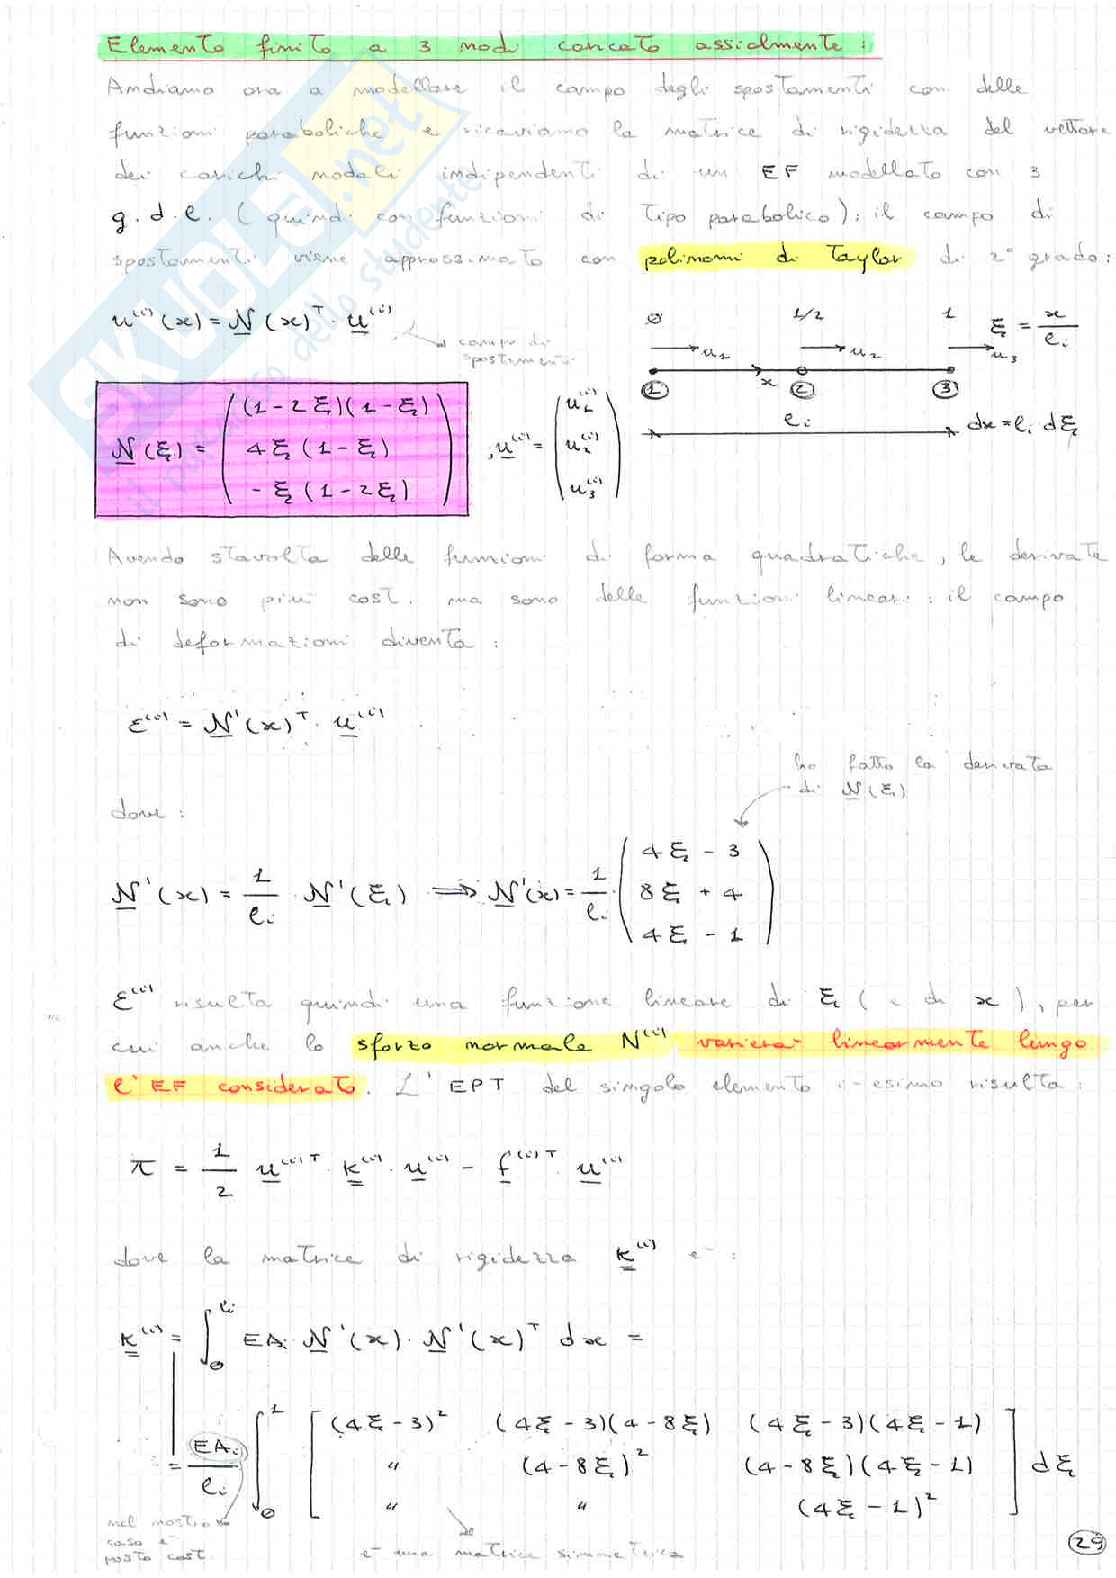 Elemento finito a 3 nodi caricato assialmente :
Andiamo ora a modellare il campo degli spostamenti con delle
funzioni paraboliche e ricaviamo la matrice di rigidezza del vettore
dei carichi nodali indipendenti di un EF modellato con 3
g.d.l. (quindi con funzioni di tipo parabolico); il campo di
spostamenti viene approssimato con polinomi di Taylor di 2° grado:
u⁽ⁱ⁾(x) = N(x)ᵀ · u⁽ⁱ⁾
campo di
spostamento
0 1/2 1 ξ = x / lᵢ
u₁ u₂ u₃
1 x 2 3
lᵢ dx = lᵢ dξ
N(ξ) = ( (1-2ξ)(1-ξ)
4ξ(1-ξ)
-ξ(1-2ξ) ) , u⁽ⁱ⁾ = ( u₁⁽ⁱ⁾
u₂⁽ⁱ⁾
u₃⁽ⁱ⁾ )
Avendo stavolta delle funzioni di forma quadratiche, le derivate
non sono più cost. ma sono delle funzioni lineari: il campo
di deformazioni diventa:
ε⁽ⁱ⁾ = N'(x)ᵀ · u⁽ⁱ⁾
ho fatto la derivata
di N(ξ)
dove:
N'(x) = 1/lᵢ · N'(ξ) ⟹ N'(x) = 1/lᵢ · ( 4ξ - 3
8ξ + 4
4ξ - 1 )
ε⁽ⁱ⁾ risulta quindi una funzione lineare di ξ (e di x), per
cui anche lo sforzo normale N⁽ⁱ⁾ varierà linearmente lungo
l'EF considerato. L'EPT del singolo elemento i-esimo risulta:
π = 1/2 u⁽ⁱ⁾ᵀ · k⁽ⁱ⁾ · u⁽ⁱ⁾ - f⁽ⁱ⁾ᵀ · u⁽ⁱ⁾
dove la matrice di rigidezza k⁽ⁱ⁾ è:
k⁽ⁱ⁾ = ∫₀^lᵢ EAᵢ N'(x) · N'(x)ᵀ dx =
= EAᵢ/lᵢ ∫₀¹ [ (4ξ-3)² (4ξ-3)(4-8ξ) (4ξ-3)(4ξ-1)
" (4-8ξ)² (4-8ξ)(4ξ-1)
" " (4ξ-1)² ] dξ
nel nostro
caso è
posto cost.
è una matrice simmetrica
29
SKUOLA.net
il paradiso dello studente